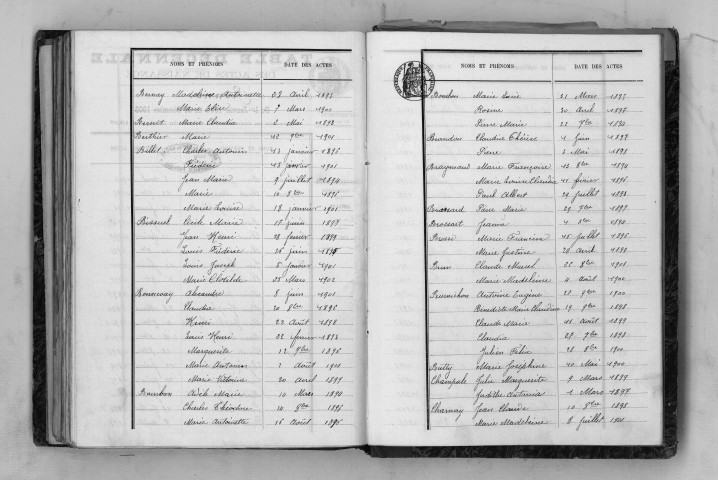 NOMS ET PRÉNOMS DATE DES ACTES
Bernay Madeleine Antoinette 23 Avril 1895
Marie Elise 7 Mars 1900
Marie Claudia 2 Mai 1893
Berthier Marie 12 9bre 1901
Billet Charles Antonin 13 janvier 1896
Frédéric 13 janvier 1901
Jean Marie 9 juillet 1894
Marie 10 8bre 1896
Marie Louise 18 janvier 1901
Bissuel Cécile Marie 15 juin 1893
Jean Henri 23 février 1893
Louis Frédéric 26 juin
Louis Joseph 5 janvier 1901
Marie Clotilde 25 Mars 1902
Alexandre 8 juin 1901
Claudia 20 1896
Henri 22 Août 1898
Louis Henri 22 février 1893
Marguerite 12 9bre 1896
Marie Antonin 2 Août 1901
Marie Victorine 20 Avril 1899
Bourbon Adèle Marie 10 Mars
Charles Théodore 10 9bre
Marie Antoinette 16 Août 1896
NOMS ET PRÉNOMS DATE DES ACTES
Bourbon Marie Louise 21 Mars 1895
Rosine 30 Avril 1897
Pierre Marie 22
Brandon Claudine Thérèse 4 juin 1899
Pierre 2 Mai
Marie Françoise 13 8bre 1894
Marie Louise Claudine 11 février 1896
Paul Albert 24 juillet 1898
Brossard Pierre Marie 29 9bre 1897
Brossart Jeanne 4
Marie Francine 15 juillet 1896
Marie Justine 20 Avril 1898
Brun Claude Marcel 25 8bre 1901
Marie Madeleine 4 Août 1900
Antoine Eugène 28 9bre 1900
Bénédicte Marie Claudine 19 9bre 1895
Claude Marie 11 Août 1899
Claudia 29 7bre 1893
Julien Félix 28 8bre 1900
Butty Marie Joséphine 10 Mai 1900
Champale Julie Marguerite 9 Mars 1899
Judith Antonia 1 Mars 1897
Charnay Jean Claude 10 8bre 1898
Marie Madeleine 8 juillet 1901